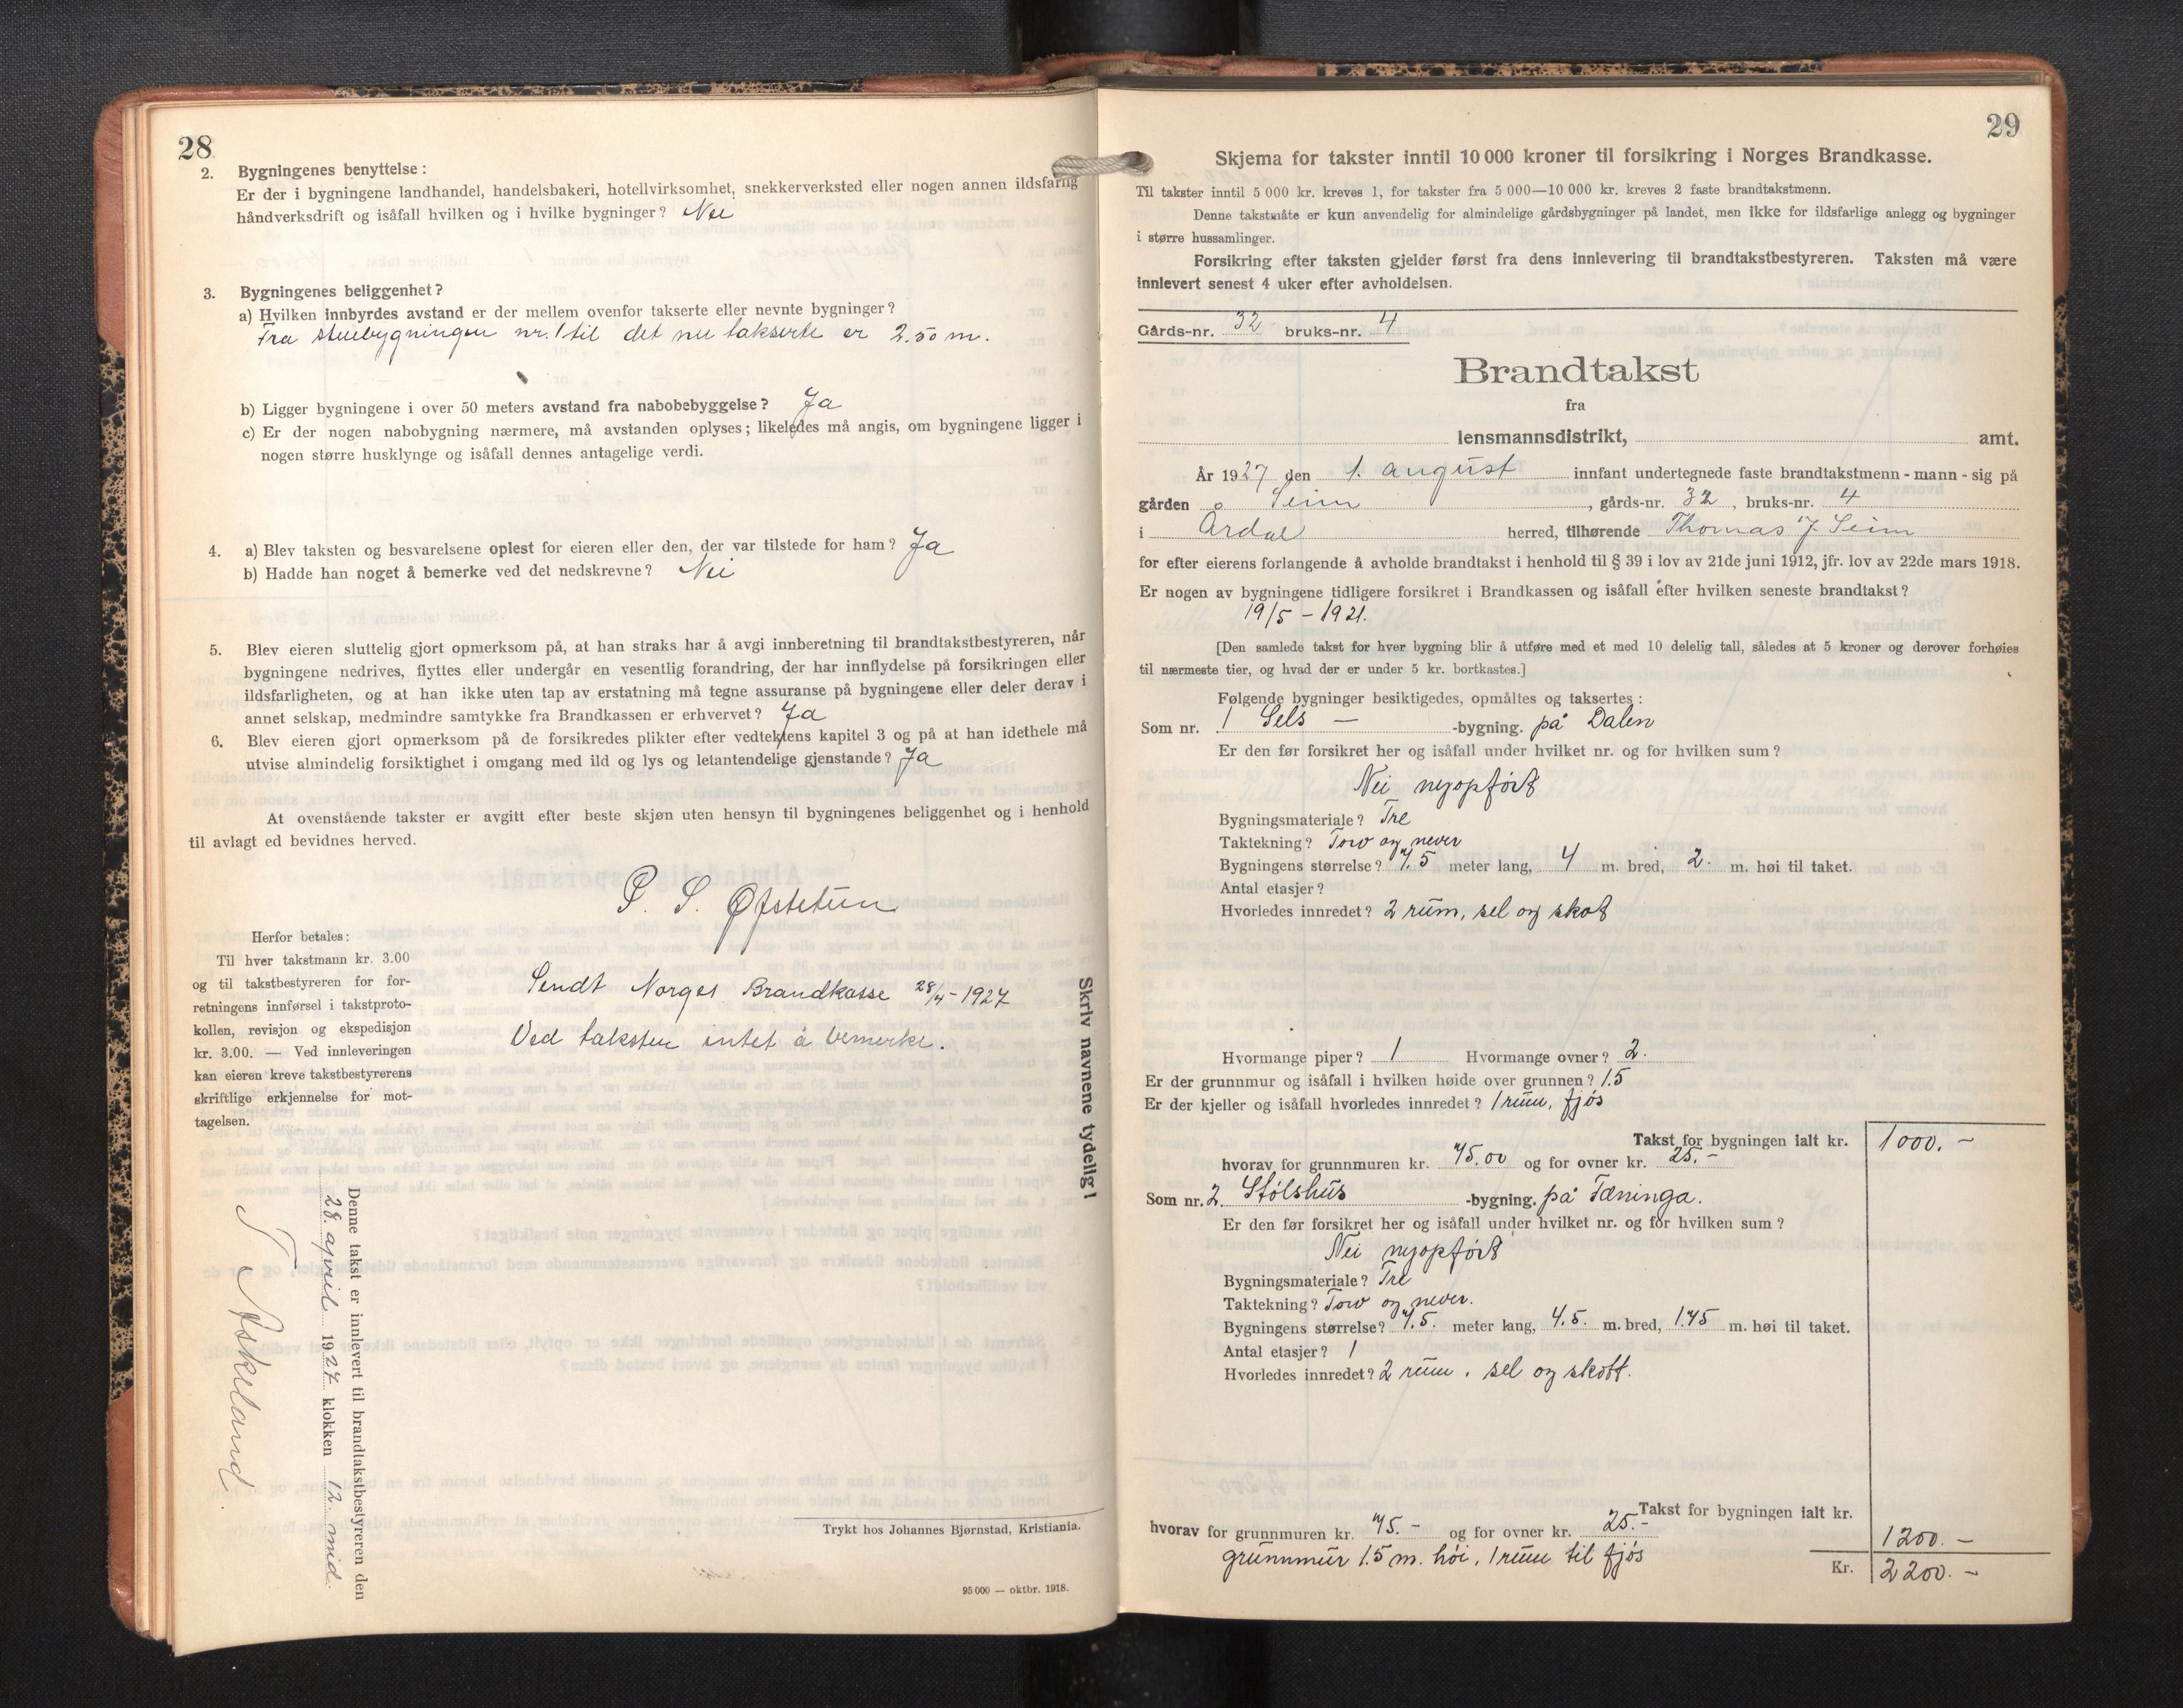 28
2. Bygningenes benyttelse:
Er der i bygningene landhandel, handelsbakeri, hotellvirksomhet, snekkerverksted eller nogen annen ildsfarlig
håndverksdrift og isåfall hvilken og i hvilke bygninger? Nei
3. Bygningenes beliggenhet?
a) Hvilken innbyrdes avstand er der mellem ovenfor takserte eller nevnte bygninger?
Fra stuebygningen nr. 1 til det nu takserte er 2.50 m.
b) Ligger bygningene i over 50 meters avstand fra nabobebyggelse? Ja
c) Er der nogen nabobygning nærmere, må avstanden oplyses; likeledes må angis, om bygningene ligger i
nogen større husklynge og isåfall dennes antagelige verdi.
4. a) Blev taksten og besvarelsene oplest for eieren eller den, der var tilstede for ham? Ja
b) Hadde han noget å bemerke ved det nedskrevne? Nei
5. Blev eieren sluttelig gjort opmerksom på, at han straks har å avgi innberetning til brandtakstbestyreren, når
bygningene nedrives, flyttes eller undergår en vesentlig forandring, der har innflydelse på forsikringen eller
ildsfarligheten, og at han ikke uten tap av erstatning må tegne assuranse på bygningene eller deler derav i
annet selskap, medmindre samtykke fra Brandkassen er erhvervet? Ja
6. Blev eieren gjort opmerksom på de forsikredes plikter efter vedtektens kapitel 3 og på at han idethele må
utvise almindelig forsiktighet i omgang med ild og lys og letantendelige gjenstande? Ja
At ovenstående takster er avgitt efter beste skjøn uten hensyn til bygningenes beliggenhet og i henhold
til avlagt ed bevidnes herved.
P. S. Øfstetun
Herfor betales:
Til hver takstmann kr. 3.00
og til takstbestyreren for for-
retningens innførsel i takstproto-
kollen, revisjon og ekspedisjon
kr. 3.00. — Ved innleveringen
kan eieren kreve takstbestyrerens
skriftlige erkjennelse for mot-
tagelsen.
Sendt Norges Brandkasse 28/4-1927
Ved taksten intet å bemerke.
Skriv navnene tydelig!
Denne takst er innlevert til brandtakstbestyreren den
28. april 1927 klokken 12 mid.
T Askeland.
Trykt hos Johannes Bjørnstad, Kristiania.
95 000 — oktbr. 1918.
29
Skjema for takster inntil 10 000 kroner til forsikring i Norges Brandkasse.
Til takster inntil 5 000 kr. kreves 1, for takster fra 5 000—10 000 kr. kreves 2 faste brandtakstmenn.
Denne takstmåte er kun anvendelig for almindelige gårdsbygninger på landet, men ikke for ildsfarlige anlegg og bygninger
i større hussamlinger.
Forsikring efter taksten gjelder først fra dens innlevering til brandtakstbestyreren. Taksten må være
innlevert senest 4 uker efter avholdelsen.
Gårds-nr. 32 bruks-nr. 4
Brandtakst
fra
lensmannsdistrikt, amt.
År 1927 den 1. august innfant undertegnede faste brandtakstmenn - mann - sig på
gården Seim, gårds-nr. 32, bruks-nr. 4
i Årdal herred, tilhørende Thomas J. Seim
for efter eierens forlangende å avholde brandtakst i henhold til § 39 i lov av 21de juni 1912, jfr. lov av 22de mars 1918.
Er nogen av bygningene tidligere forsikret i Brandkassen og isåfall efter hvilken seneste brandtakst?
19/5 - 1921.
[Den samlede takst for hver bygning blir å utføre med et med 10 delelig tall, således at 5 kroner og derover forhøies
til nærmeste tier, og hvad der er under 5 kr. bortkastes.]
Følgende bygninger besiktigedes, opmåltes og taksertes:
Som nr. 1 Sels — -bygning. på Dalen
Er den før forsikret her og isåfall under hvilket nr. og for hvilken sum?
Nei nyopført
Bygningsmateriale? Tre
Taktekning? Torv og never
Bygningens størrelse? 7.5 meter lang, 4 m. bred, 2. m. høi til taket.
Antal etasjer?
Hvorledes innredet? 2 rum, sel og skot
Hvormange piper? 1 Hvormange ovner? 2.
Er der grunnmur og isåfall i hvilken høide over grunnen? 1.5
Er der kjeller og isåfall hvorledes innredet? 1 rum, fjós
Takst for bygningen ialt kr. 1000.-
hvorav for grunnmuren kr. 75.00 og for ovner kr. 25.-
Som nr. 2. Stølshus -bygning. på Tæninga.
Er den før forsikret her og isåfall under hvilket nr. og for hvilken sum?
Nei nyopført
Bygningsmateriale? Tre
Taktekning? Torv og never.
Bygningens størrelse? 7.5. meter lang, 4.5. m. bred, 1.75 m. høi til taket.
Antal etasjer? 1
Hvorledes innredet? 2 rum. sel og skott.
Takst for bygningen ialt kr.
hvorav for grunnmuren kr. 75.- og for ovner kr. 25.- 1200.-
grunnmur 1.5 m. høi, 1 rum til fjós
Kr. 2200.-